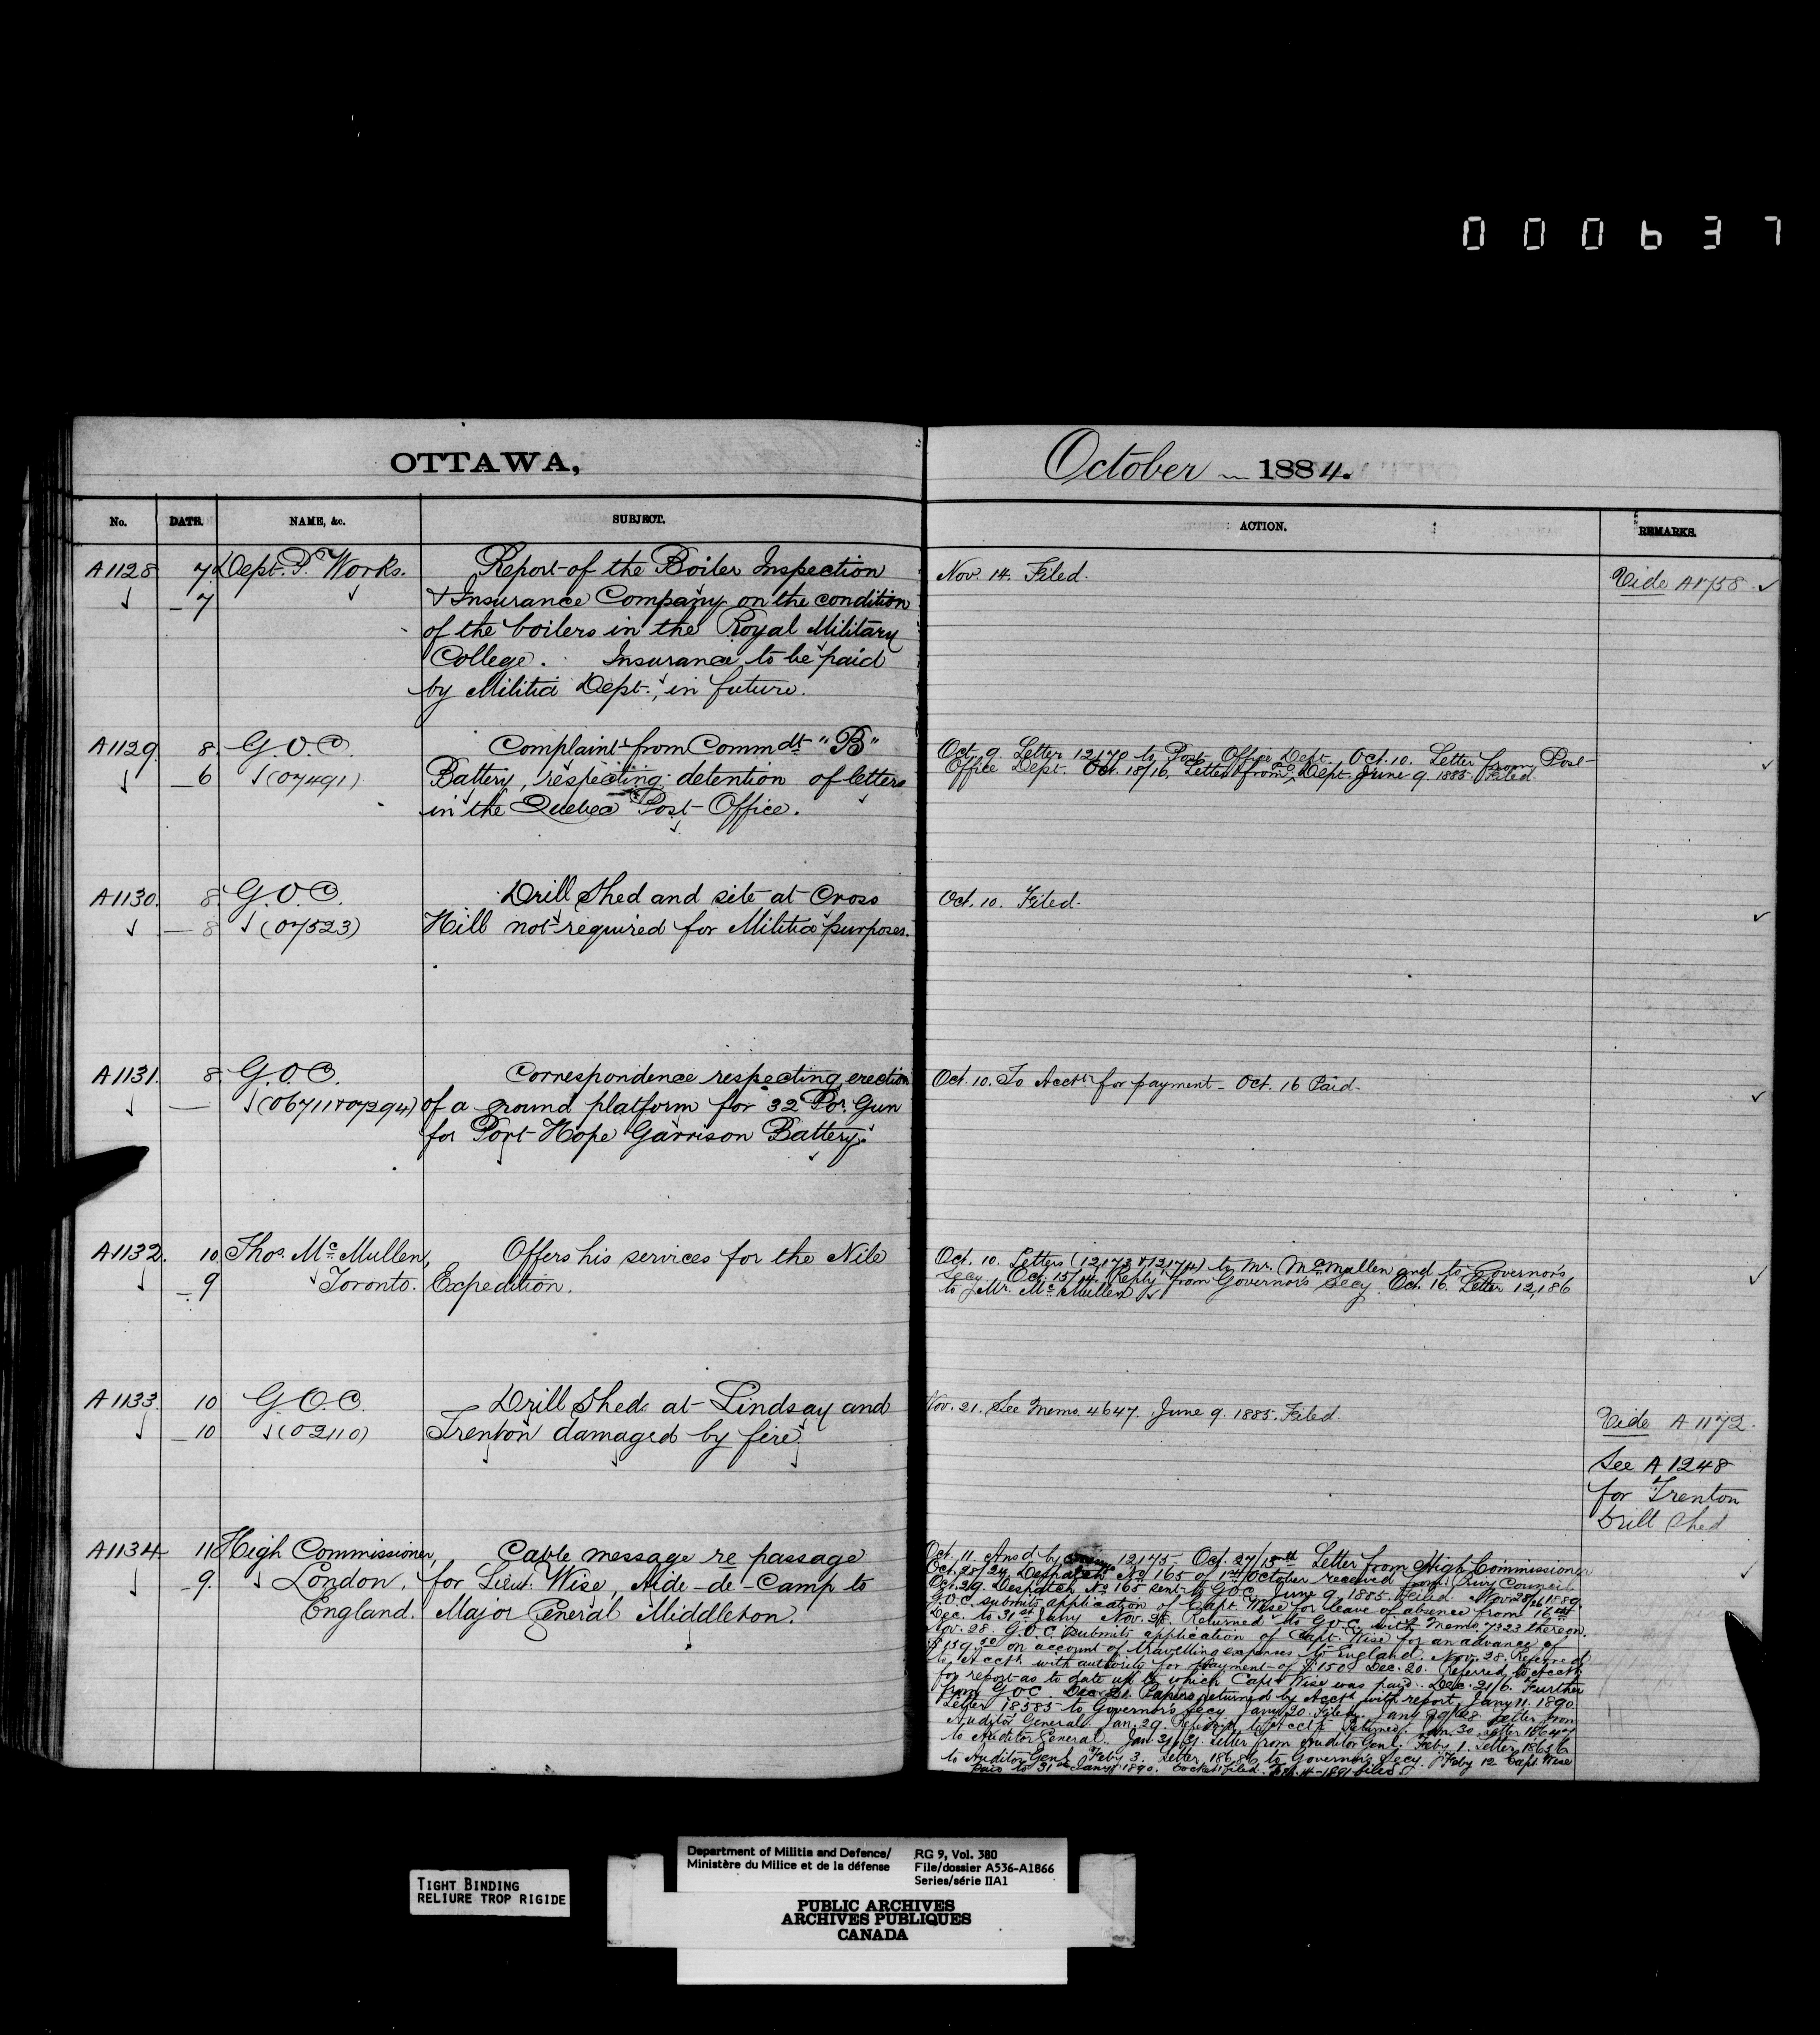 000637
OTTAWA,
October 1884.
No. DATE. NAME, &c. SUBJECT. ACTION. REMARKS.
A1128 7 Dept. P. Works. Report of the Boiler Inspection Nov. 14. Filed. Vide A1758
7 & Insurance Company on the condition
of the boilers in the Royal Military
College. Insurance to be paid
by Militia Dept., in future.
A1129 8 G.O.C. Complaint from Commdt "B" Oct. 9. Letter 12170 to Post Office Dept. Oct. 10. Letter from Post
6 (07491) Battery, respecting detention of letters Office Dept. Oct. 18/16. Letter from Dept. June 9. 1885. Filed.
in the Quebec Post Office.
A1130. 8 G.O.C. Drill Shed and site at Cross Oct. 10. Filed.
8 (07523) Hill not required for Militia purposes.
A1131. 8 G.O.C. Correspondence respecting erection Oct. 10. To Acctt. for payment - Oct. 16 Paid.
— (06711 & 07294) of a ground platform for 32 Por. Gun
for Port Hope Garrison Battery.
A1132. 10 Thos. McMullen, Offers his services for the Nile Oct. 10. Letters (12173 & 12174) to Mr. McMullen and to Governor's
9 Toronto. Expedition. Secy. Oct. 15/14. Reply from Governor's Secy. Oct. 16. Letter 12,186
to Mr. McMullen
A1133. 10 G.O.C. Drill Shed at Lindsay and Nov. 21. See Memo. 4647. June 9. 1885. Filed. Vide A1172.
10 (02110) Trenton damaged by fire.
See A1248
for Trenton
Drill Shed
A1134 11 High Commissioner, Cable message re passage Oct. 11. Ansd by 12175. Oct. 27/15th Letter from High Commissioner
9. London, for Lieut. Wise, Aide-de-Camp to Oct. 28/24. Despatch No 165 of 1st October received from Privy Council
England. Major General Middleton. Oct. 29. Despatch No 165 sent to G.O.C. June 9. 1885. Filed. Nov. 28/26 1889.
G.O.C. submits application of Capt. Wise for leave of absence from 16th
Dec. to 31st Jany. Nov. 28. Returned to G.O.C. with Memo 7323 thereon.
Nov. 28. G.O.C. submits application of Capt. Wise for an advance of
$150.00 on account of travelling expenses to England. Nov. 28. Referred
to Acctt. with authority for payment of $150. Dec. 20. Referred to Acctt.
for report as to date up to which Capt Wise was paid. Dec. 21/6. Further
from G.O.C. Dec. 21. Papers returned by Acctt. with report. Jany 11. 1890.
Letter 18585 to Governor's Secy. Jany 20. Filed. Jany 29/28 Letter from
Auditor General. Jan. 29. Referred to Acctt. Returned. Jan. 30. Letter
to Auditor General. Jan. 31/31. Letter from Auditor Genl. Feby 1. Letter 18656
to Auditor Genl. Feby 3. Letter 18686 to Governor's Secy. Feby 12 Capt. Wise
Paid to 31st Jany. 1890. Docket filed. 1891 filed
TIGHT BINDING
RELIURE TROP RIGIDE
Department of Militia and Defence/ RG 9, Vol. 380
Ministère du Milice et de la défense File/dossier A536-A1866
Series/série IIA1
PUBLIC ARCHIVES
ARCHIVES PUBLIQUES
CANADA